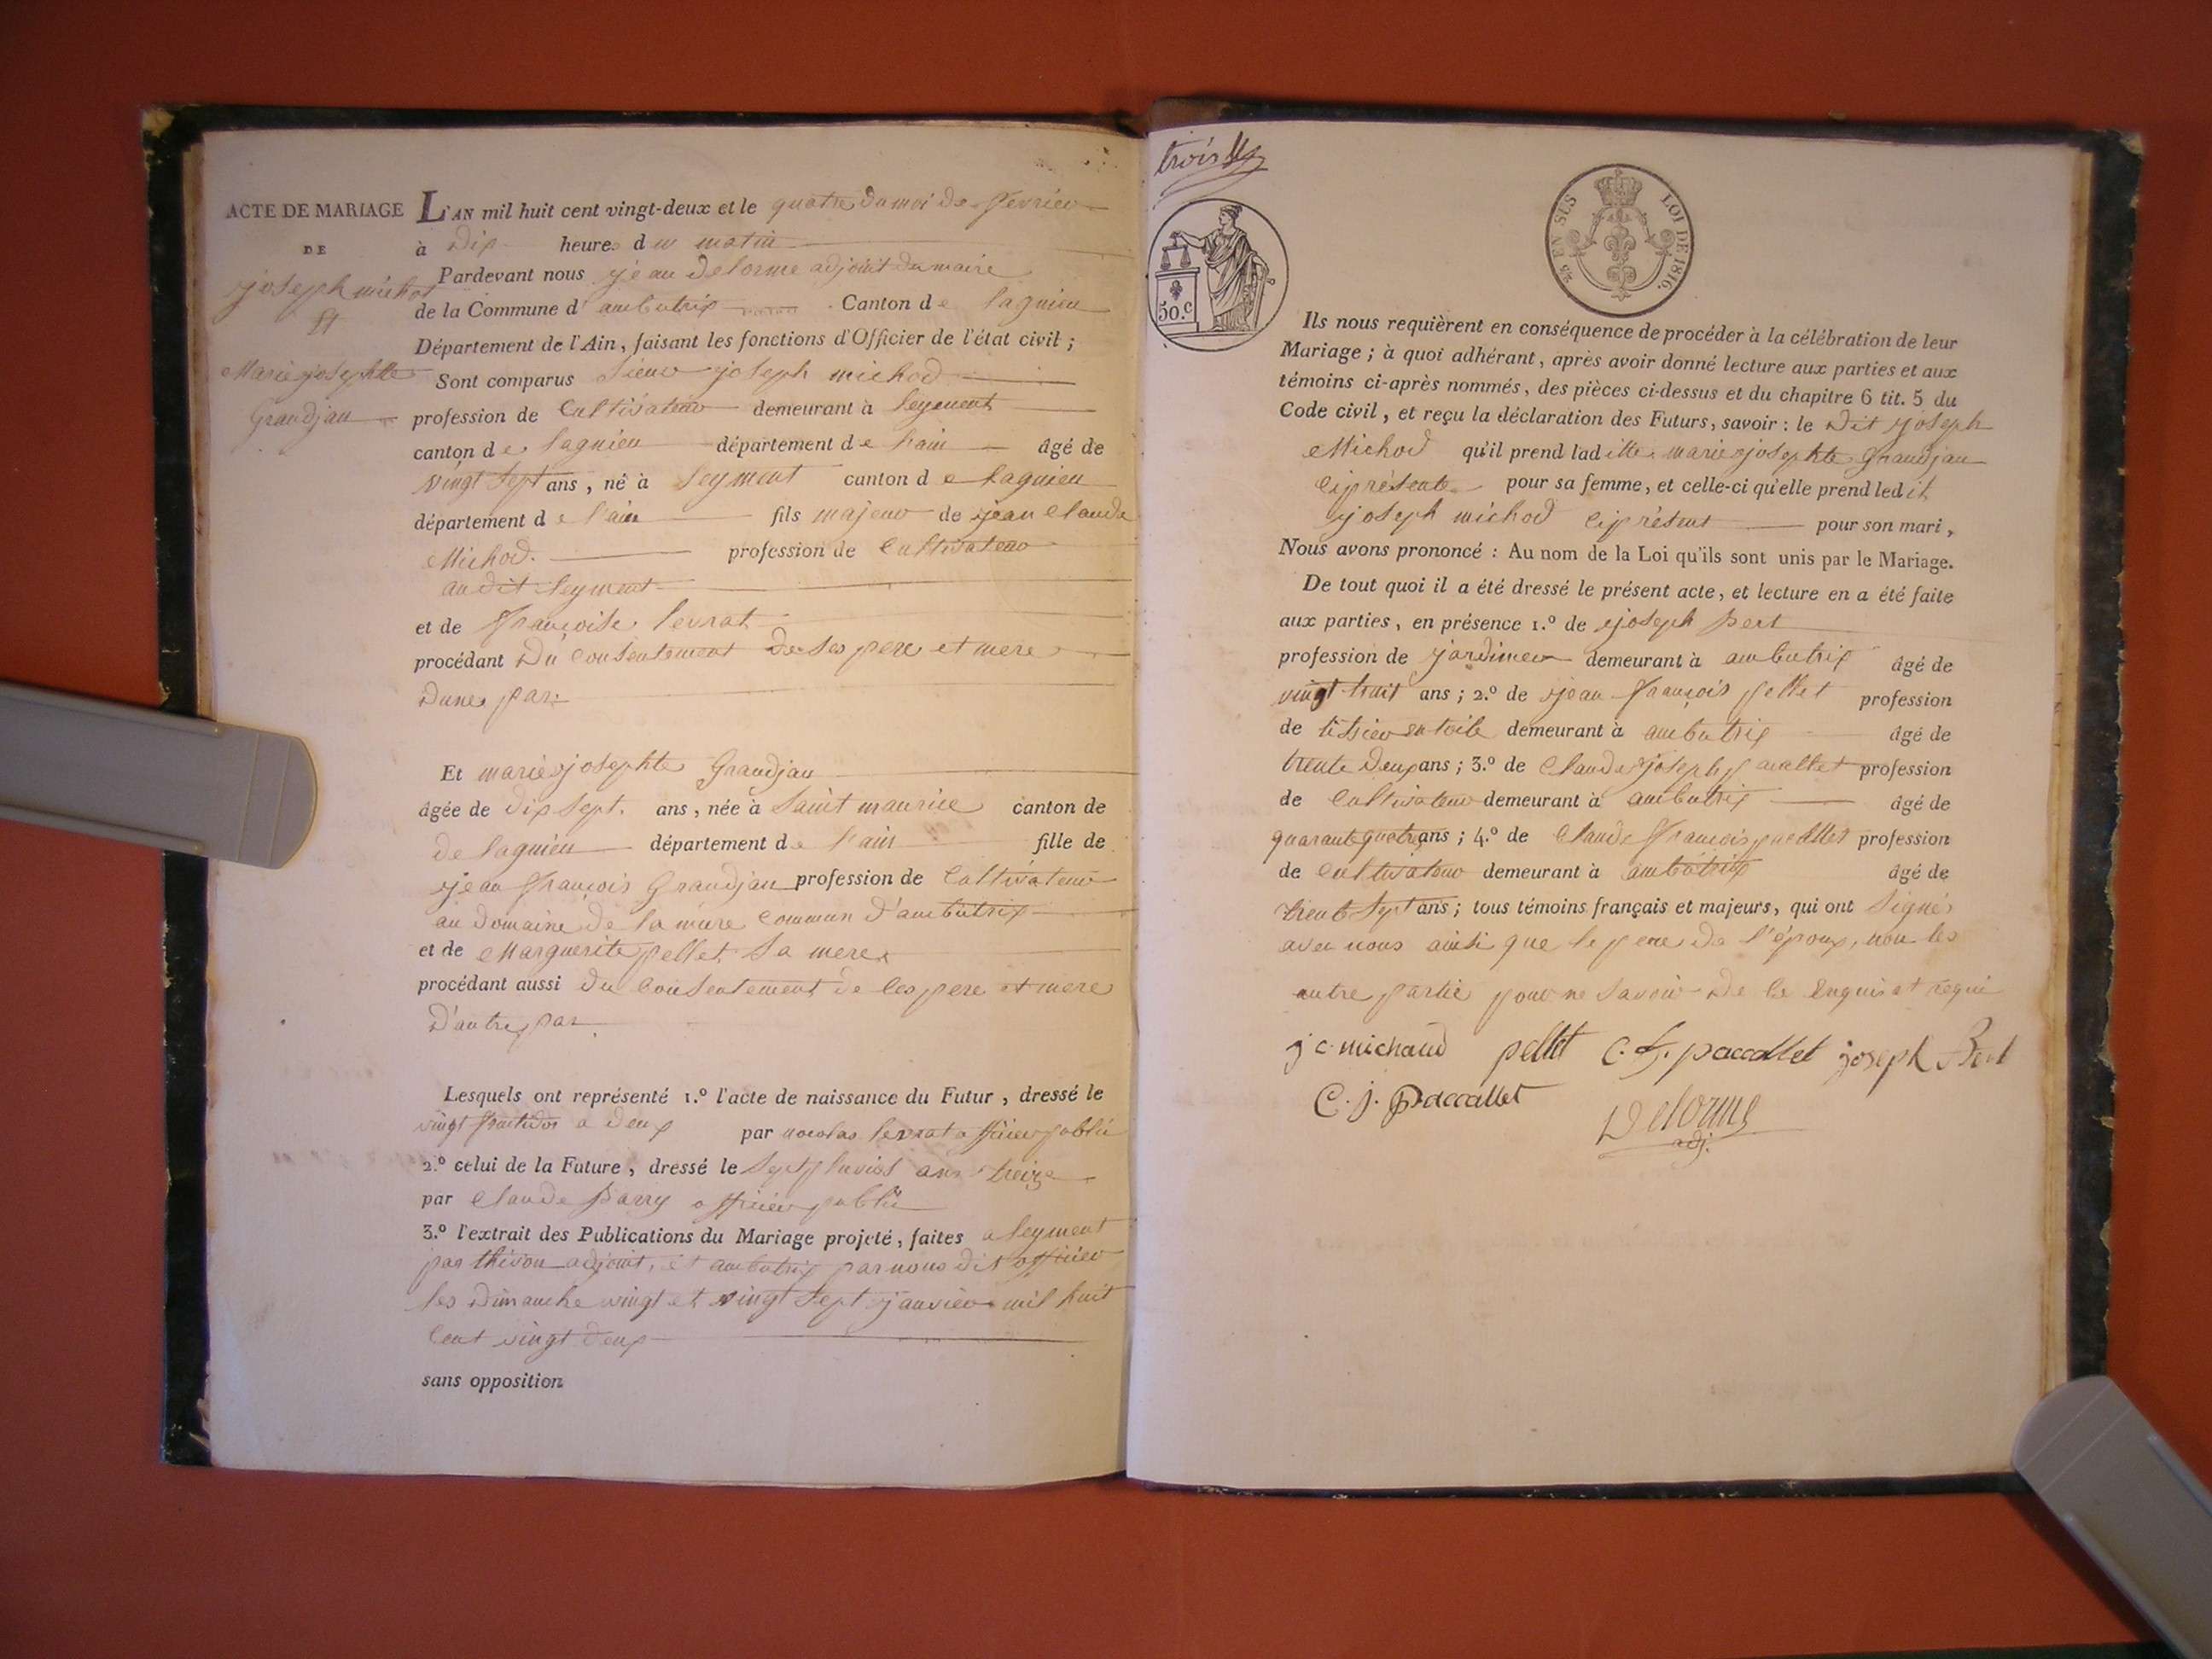 ACTE DE MARIAGE
DE
joseph michod
Et
Marie josephte
Grandjan
L'AN mil huit cent vingt-deux et le quatre du moi de fevrier
à dix heures du matin
Pardevant nous jean delorme adjoint du maire
de la Commune d'ambutrix Canton de lagnieu
Département de l'Ain, faisant les fonctions d'Officier de l'état civil;
Sont comparus sieur joseph michod
profession de Cultivateur demeurant à leyment
canton de lagnieu département de l'ain âgé de
vingt sept ans, né à leyment canton de lagnieu
département de l'ain fils majeur de jean claude
Michod. profession de Cultivateur
audit leyment
et de françoise levrat
procédant du consentement de ses pere et mere
dune par
Et marie josephte Grandjan
âgée de dix sept. ans, née à saint maurice canton de
de lagnieu département de l'ain fille de
jean françois Grandjan profession de Cultivateur
au domaine de la mure commun d'ambutrix
et de Marguerite pellet sa mere
procédant aussi du consentement de ces pere et mere
D'autre par
Lesquels ont représenté 1.º l'acte de naissance du Futur, dressé le
vingt fructidor a deux par nicolas levrat officier public
2.º celui de la Future, dressé le sept pluviôs ans treize
par claude Barry officier public
3.º l'extrait des Publications du Mariage projeté, faites a leyment
par thévon adjoint, et ambutrix par nous dit officier
les dimanche vingt et vingt sept janvier mil huit
cent vingt deux
sans opposition
trois
50.C
25 EN SUS LOI DE 1816.
Ils nous requièrent en conséquence de procéder à la célébration de leur
Mariage; à quoi adhérant, après avoir donné lecture aux parties et aux
témoins ci-après nommés, des pièces ci-dessus et du chapitre 6 tit. 5 du
Code civil, et reçu la déclaration des Futurs, savoir: le dit joseph
Michod qu'il prend laditte marie josephte Grandjan
ciprésente pour sa femme, et celle-ci qu'elle prend ledit
joseph michod ciprésent pour son mari,
Nous avons prononcé: Au nom de la Loi qu'ils sont unis par le Mariage.
De tout quoi il a été dressé le présent acte, et lecture en a été faite
aux parties, en présence 1.º de joseph Bert
profession de jardinier demeurant à ambutrix âgé de
vingt huit ans; 2.º de jean françois pellet profession
de tissier en toile demeurant à ambutrix âgé de
trente deux ans; 3.º de claude joseph paccallet profession
de cultivateur demeurant à ambutrix âgé de
quarante quatre ans; 4.º de claude françois paccallet profession
de cultivateur demeurant à ambutrix âgé de
trent sept ans; tous témoins français et majeurs, qui ont signés
avec nous ainsi que le pere de l'époux, non les
autre partie pour ne savoir de ce enquis et requi
j c michaud pellet c. f. paccallet joseph Bert
C. j. Paccallet
Delorme
adj.